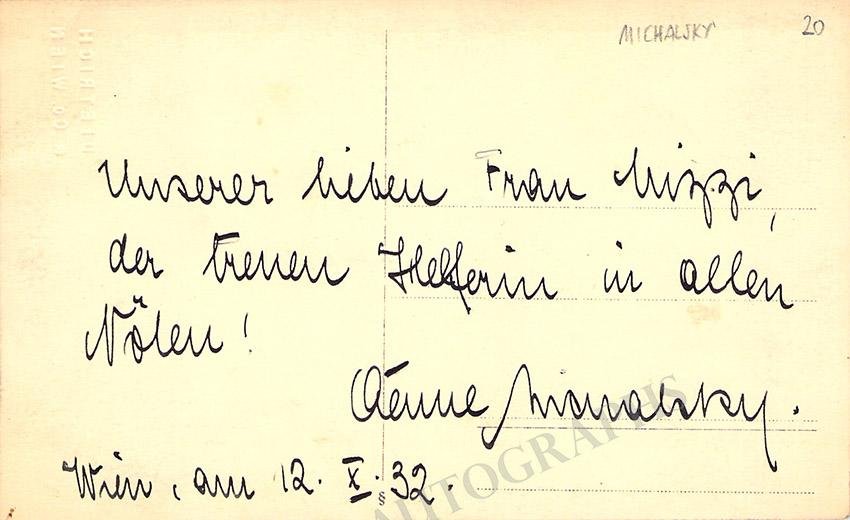 MICHALSKY 20
Unserer lieben Frau Mizzi,
der treuen Helferin in allen
Nöten!
Aenne Michalsky.
Wien, am 12. X. 32.
§
AUTOGRAPHS